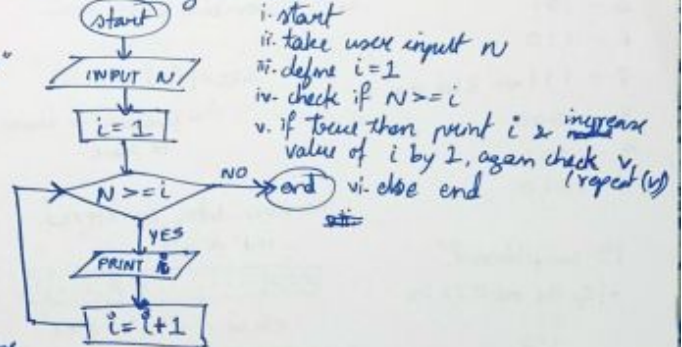 start
INPUT N
i = 1
N >= i
NO
end
YES
PRINT i
i = i + 1
i. start
ii. take user input N
iii. define i = 1
iv. check if N >= i
v. if true then print i & increase
value of i by 1, again check v,
(repeat (v))
vi. else end